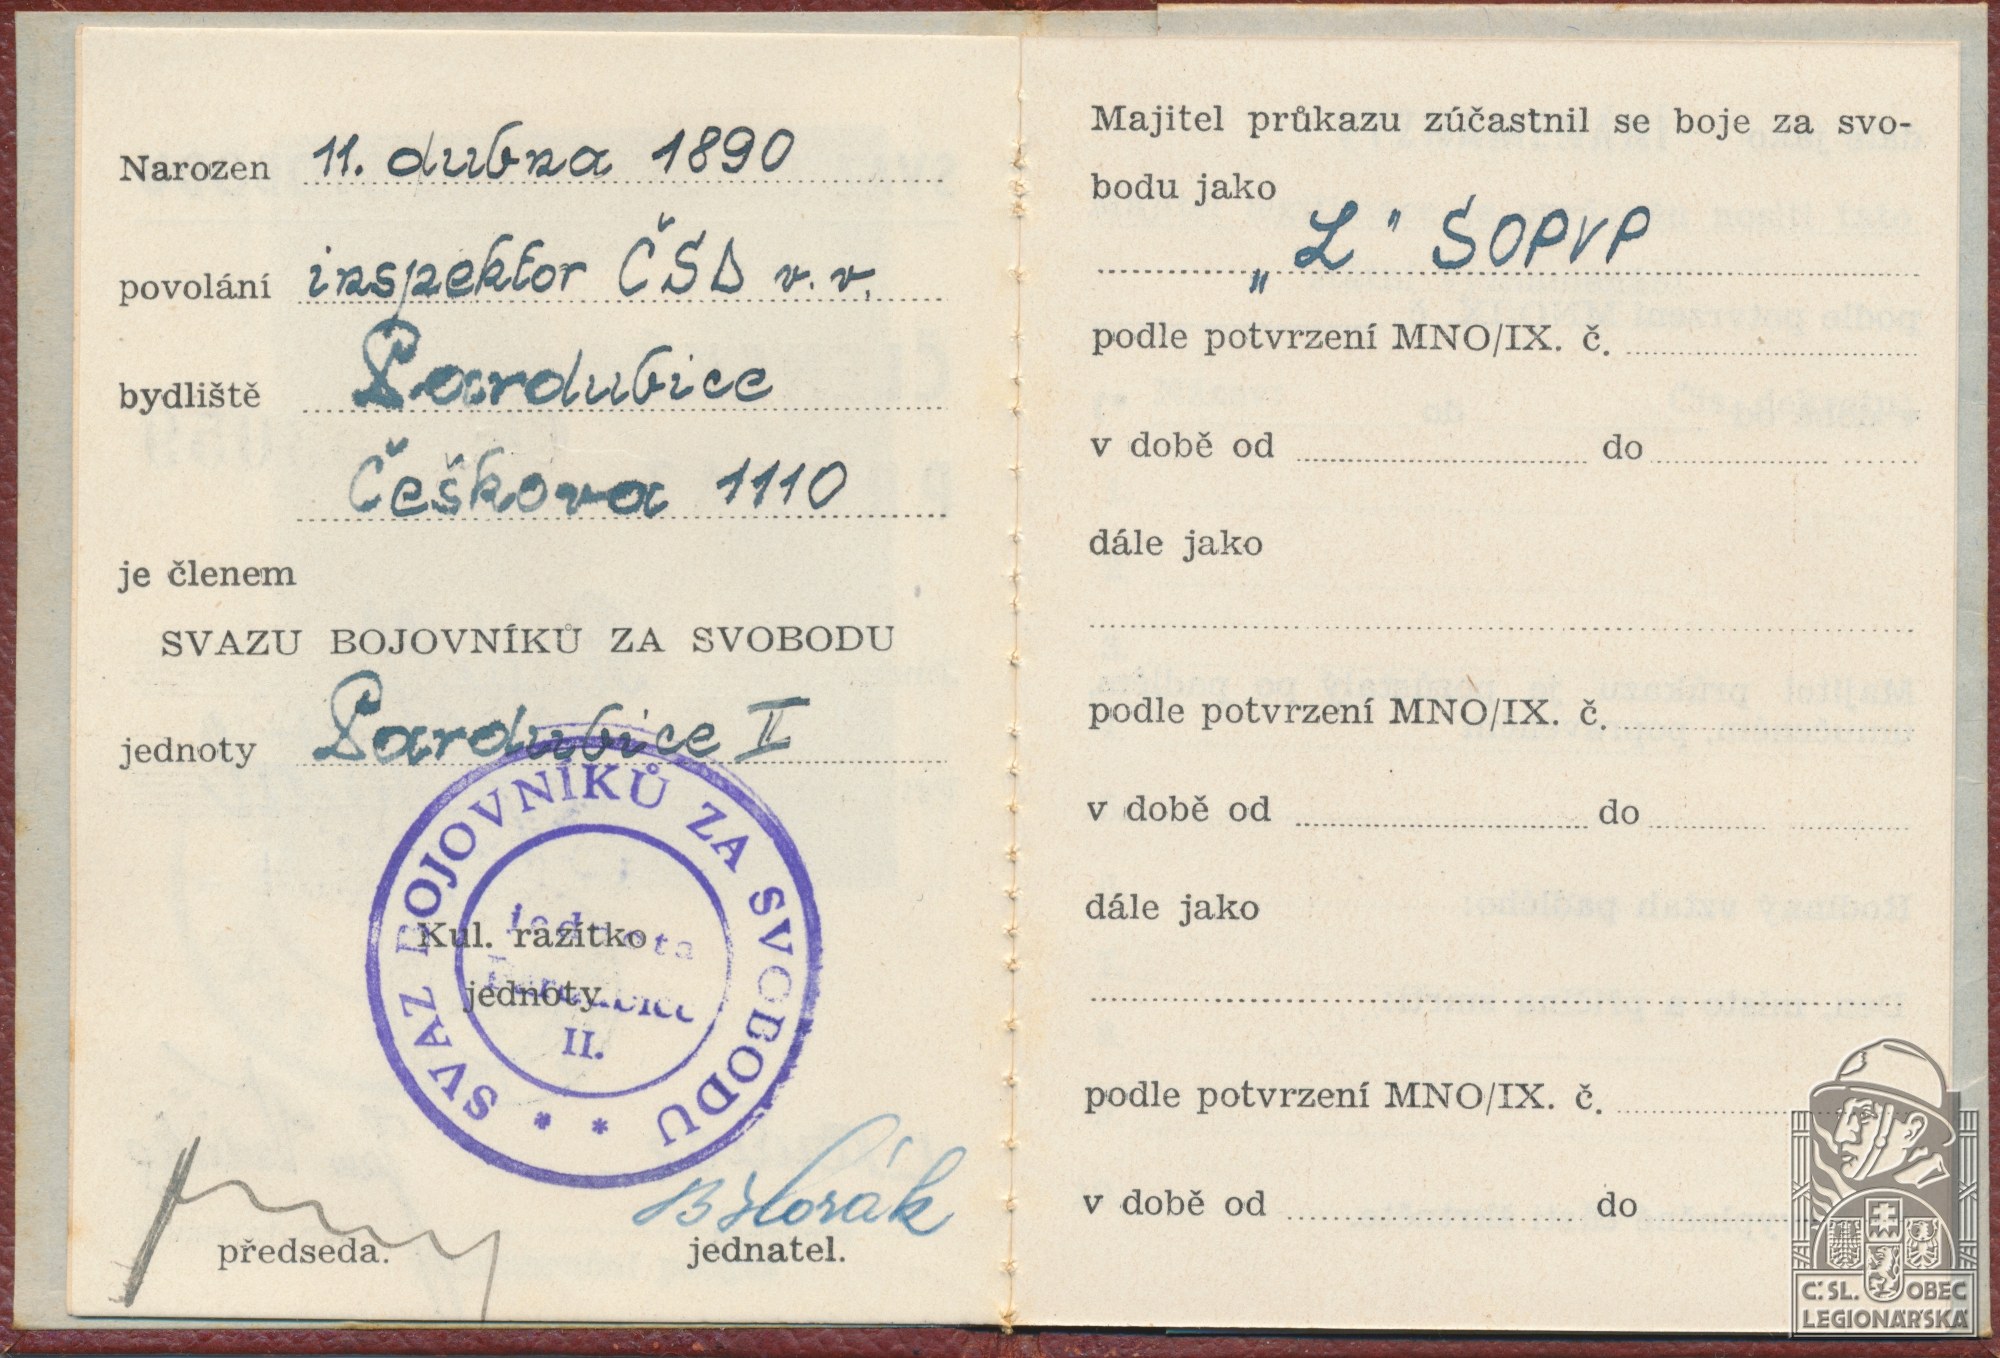 Narozen 11. dubna 1890
povolání inspektor ČSD v. v.
bydliště Pardubice
Češkova 1110
je členem
SVAZU BOJOVNÍKŮ ZA SVOBODU
jednoty Pardubice II
SVAZ BOJOVNÍKŮ ZA SVOBODU
Jednota
Pardubice
II.
* *
Kul. razítko
jednoty.
B Horák
předseda. jednatel.
Majitel průkazu zúčastnil se boje za svo-
bodu jako
„L" SOPVP
podle potvrzení MNO/IX. č.
v době od do
dále jako
podle potvrzení MNO/IX. č.
v době od do
dále jako
podle potvrzení MNO/IX. č.
v době od do
Č.SL. OBEC
LEGIONÁŘSKÁ